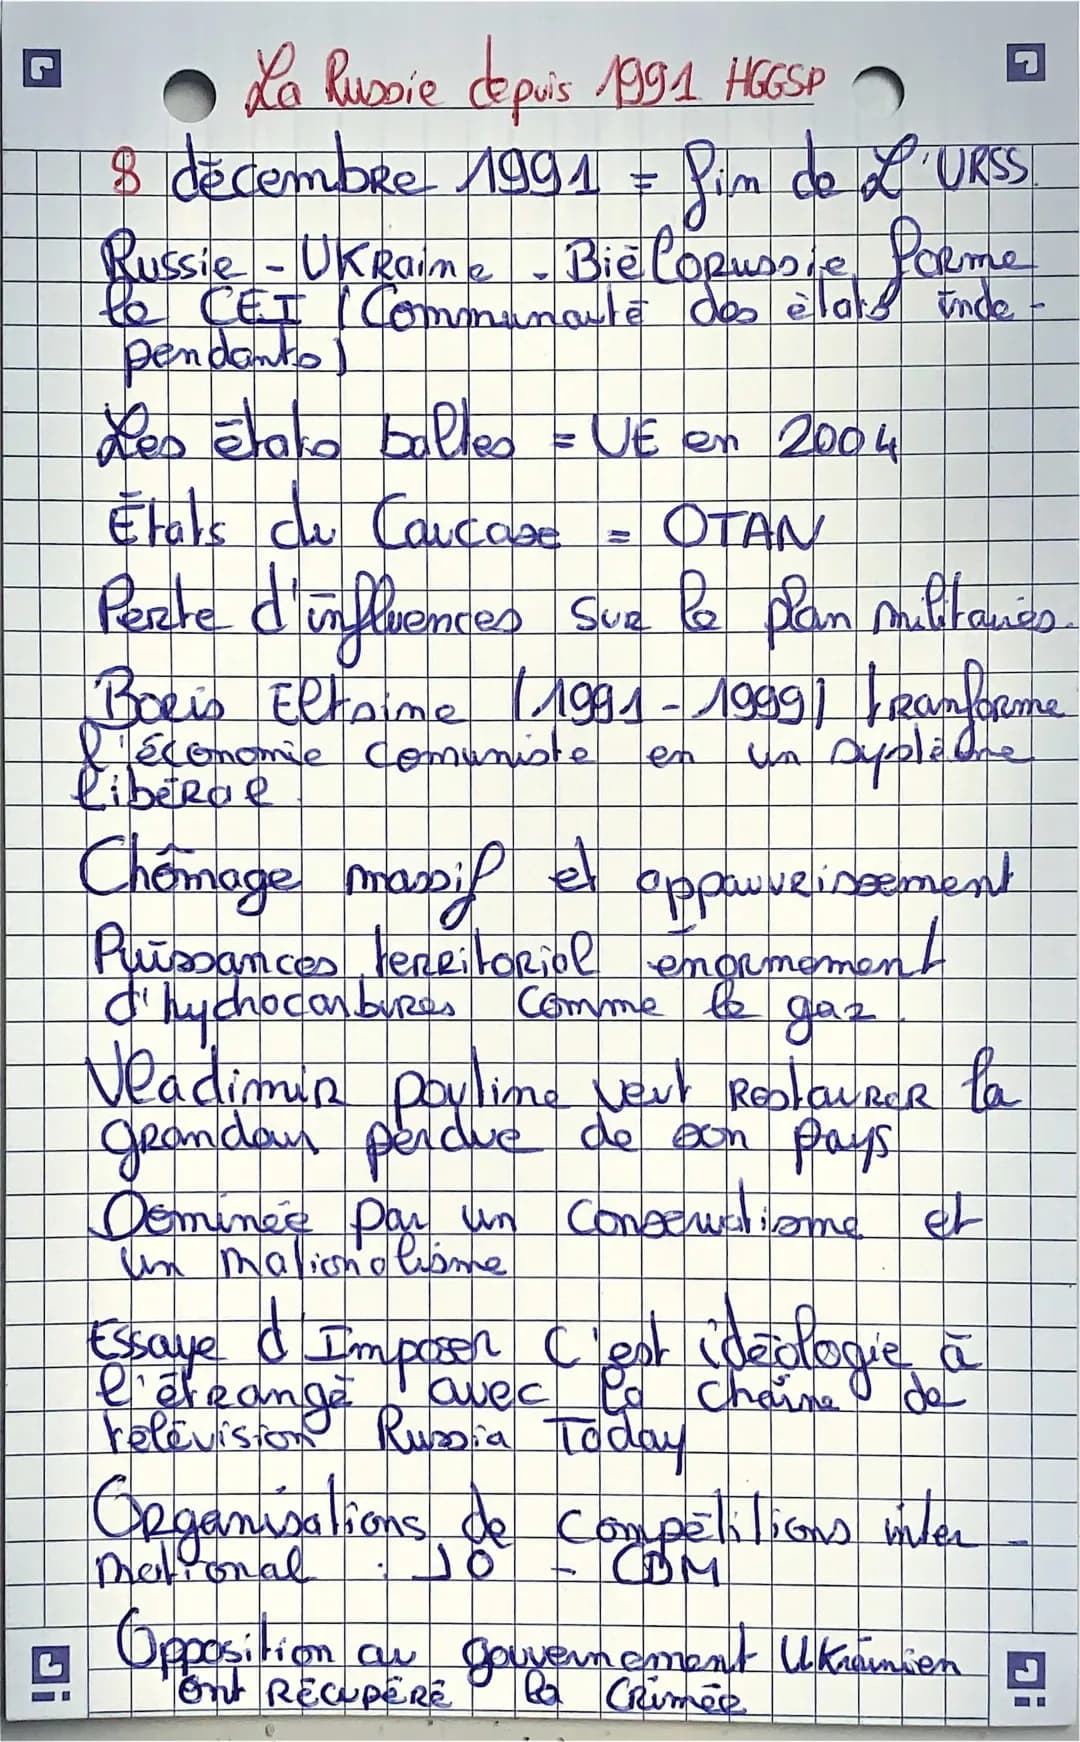 La Russie depuis 1991 HGGSP
8 décembre 1991 = fin de L'URSS.
Russie - UKRaine - Biélorussie forme
le CEI (Communauté des états inde-
pendants)
Les états baltes = UE en 2004
États du Caucase = OTAN
Perte d'influences sur le plan militaires.
Boris Eltsine (1991-1999) tranforme
l'économie comuniste en un système
libérale
Chômage massif et appauvrissement
Puissances territorial énormement
d'hydrocarbures comme le gaz.
Vladimir poutine veut Restaurer la
grandeur perdue de son pays
Dominée par un Conservatisme et
un nationalisme
Essaye d'Imposer c'est idéologie à
l'étrangé avec la chaîne de
télévision Russia Today
Organisations de compétitions inter-
national : JO - CDM
Opposition au gouvernement Ukrainien
ont Récupéré la Crimée